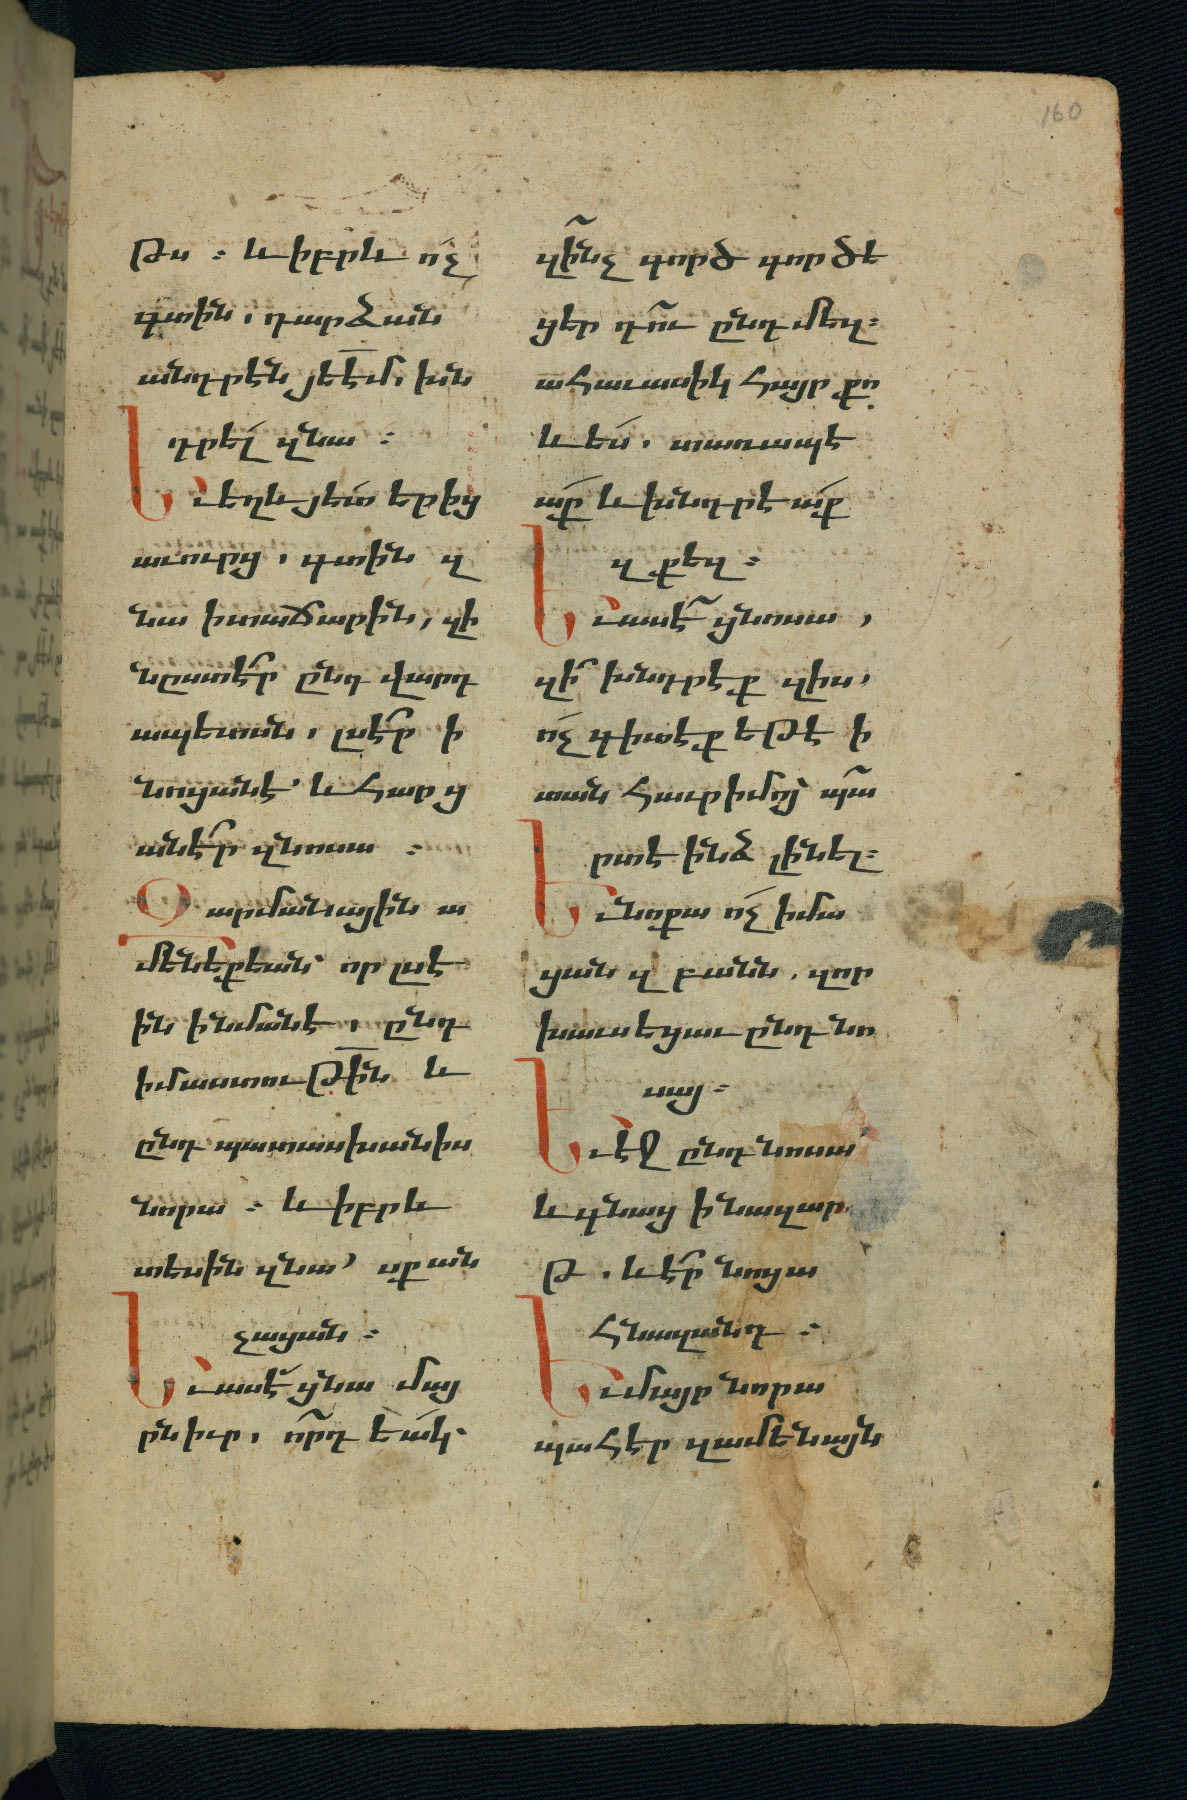 160
թս ։ և իբրև ո՛չ
գտին, դարձան
անդրէն յե̅է̅մ, խն
դրել զնա ։
Եւ եղև յետ երից
աւուրց, գտին զ
նա ի տաճարին, զի
նըստէ՜ր ընդ վարդ
ապետսն, լսէ՜ր ի
նոցանէ՝ և հարց
անէ՜ր զնոսա ։
Զարմանային ա
մենեքեան՝ որ լսէ
ին ի նմանէ, ընդ
իմաստութի̅ն և
ընդ պատասխանիս
նորա ։ և իբրև
տեսին զնա՝ սքան
չացան ։
Եւ ասէ՜ ցնա մայ
րն իւր, ո՞րդ եակ՝
զի՞նչ գործ գործե
ցեր դու՞ ընդ մեզ։
ահաւասիկ հայր քո
և ես. տառապէ
աք և խնդրէաք
զ քեզ ։
Եւ ասէ՜ ցնոսա,
զի՞ խնդրէք զիս,
ո՛չ գիտէք եթէ ի
տան հաւր իմոյ՝ պա՞
րտէ ինձ լինել։
Եւ նոքա ո՛չ իմա
ցան զ բանն. զոր
խաւսեցաւ ընդ նո
սայ։
Եւ էջ ընդ նոսա՝
և գնաց ի նազար
թ. և է՜ր նոցա
հնազանդ ։
Եւ մայր նորա
պահէր զամենայն